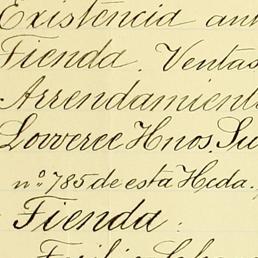 Existencia an
Tienda. Ventas
Arrendamient
Lovveree Hnos. Su
nº 785 de esta Hcda.
Tienda.